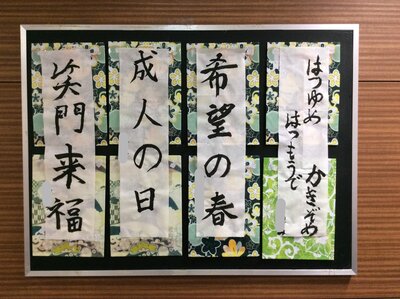 はつゆめ
はつもうで
かきぞめ
希望の春
成人の日
笑門来福